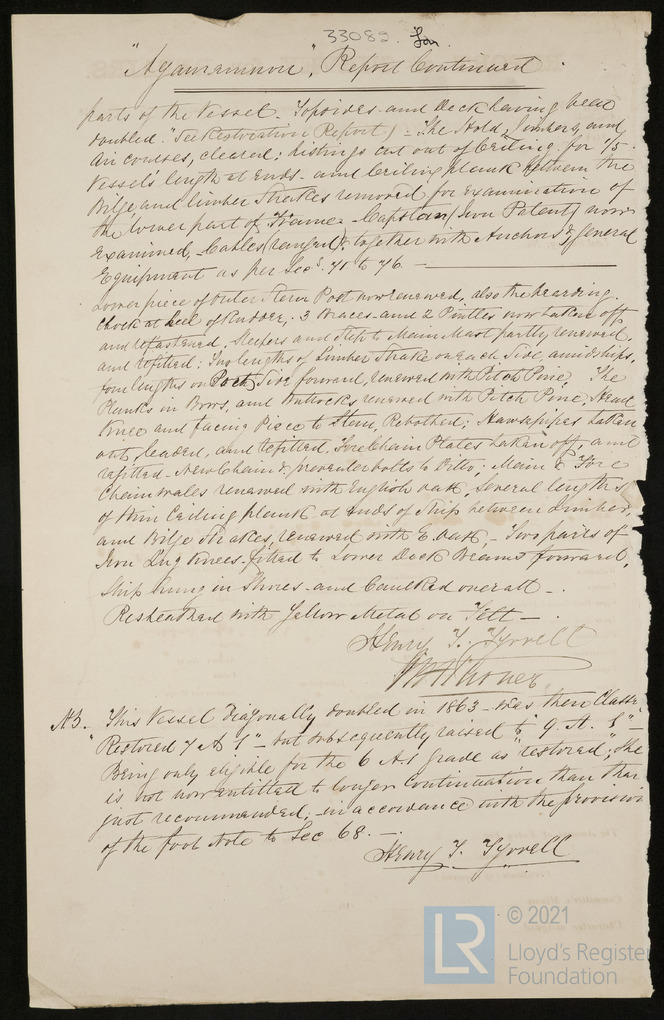 33082. Lon.
"Agamemnon", Report Continued
parts of the Vessel. Topsides and Deck having been
doubled. "See Restoration Report) – The Hold, Limbers, and
Air courses, cleared; Listings cut out of Ceiling for 1/5
Vessel's length at Ends – and Ceiling plank between the
Bilge and limber Strakes removed for Examination of
the lower part of Frame – Capstan (Iron Patent) now
Examined, – Cables (ranged) & together with Anchors & general
Equipment as per Secs. 71 to 76 –
Lower piece of outer Stern Post now renewed, also the bearding
Chock at heel of Rudder, 3 Braces and 2 Pintles now taken off
and refastened, Sleepers and Step to Main Mast partly renewed,
and refitted; Two lengths of Limber Strake on each Side, amidships,
four lengths on Port Side forward, renewed with Pitch Pine, The
Planks in Bows, and Buttocks renewed with Pitch Pine, Head
Knee and facing Piece to Stem, Rebolted; Hawsepipes taken
out, leaded, and refitted, Fore Chain Plates taken off, and
refitted – New Chain & preventer bolts to Ditto; Main & Fore
Chainwales renewed with English oak, Several lengths
of thin Ceiling plank at Ends of Ship between Limber,
and Bilge Strakes, renewed with E. oak, – Two pairs of
Iron Lug Knees fitted to Lower Deck Beams forward,
Ship hung in Shores and Caulked overall –
Resheathed with Yellow Metal on Felt –
Henry T. Tyrrell
NB. This Vessel Diagonally doubled in 1863 – was then Classed
"Restored 7 A 1" – but subsequently raised to "9 A. 1" –
Being only eligible for the 6 A1 grade as "restored", She
is not now entitled to longer Continuation than that
just recommended, – in accordance with the provision
of the foot Note to Sec 68. –
Henry T. Tyrrell
LR
© 2021
Lloyd's Register
Foundation